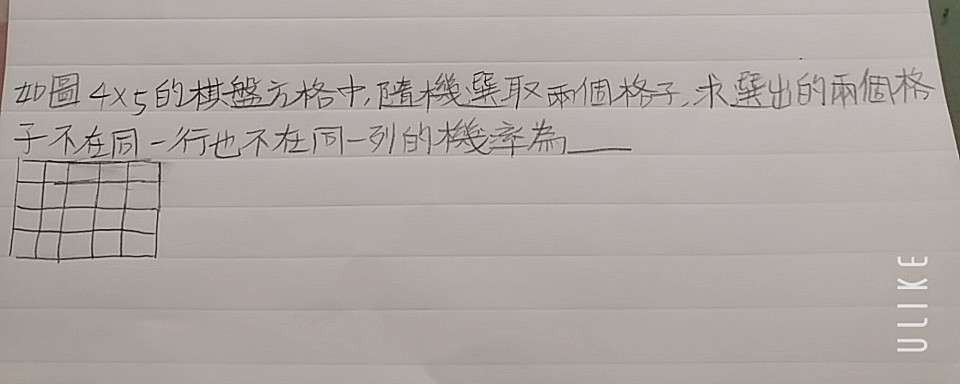 如圖4×5的棋盤方格中,隨機選取兩個格子,求選出的兩個格
子不在同一行也不在同一列的機率為____
ULIKE